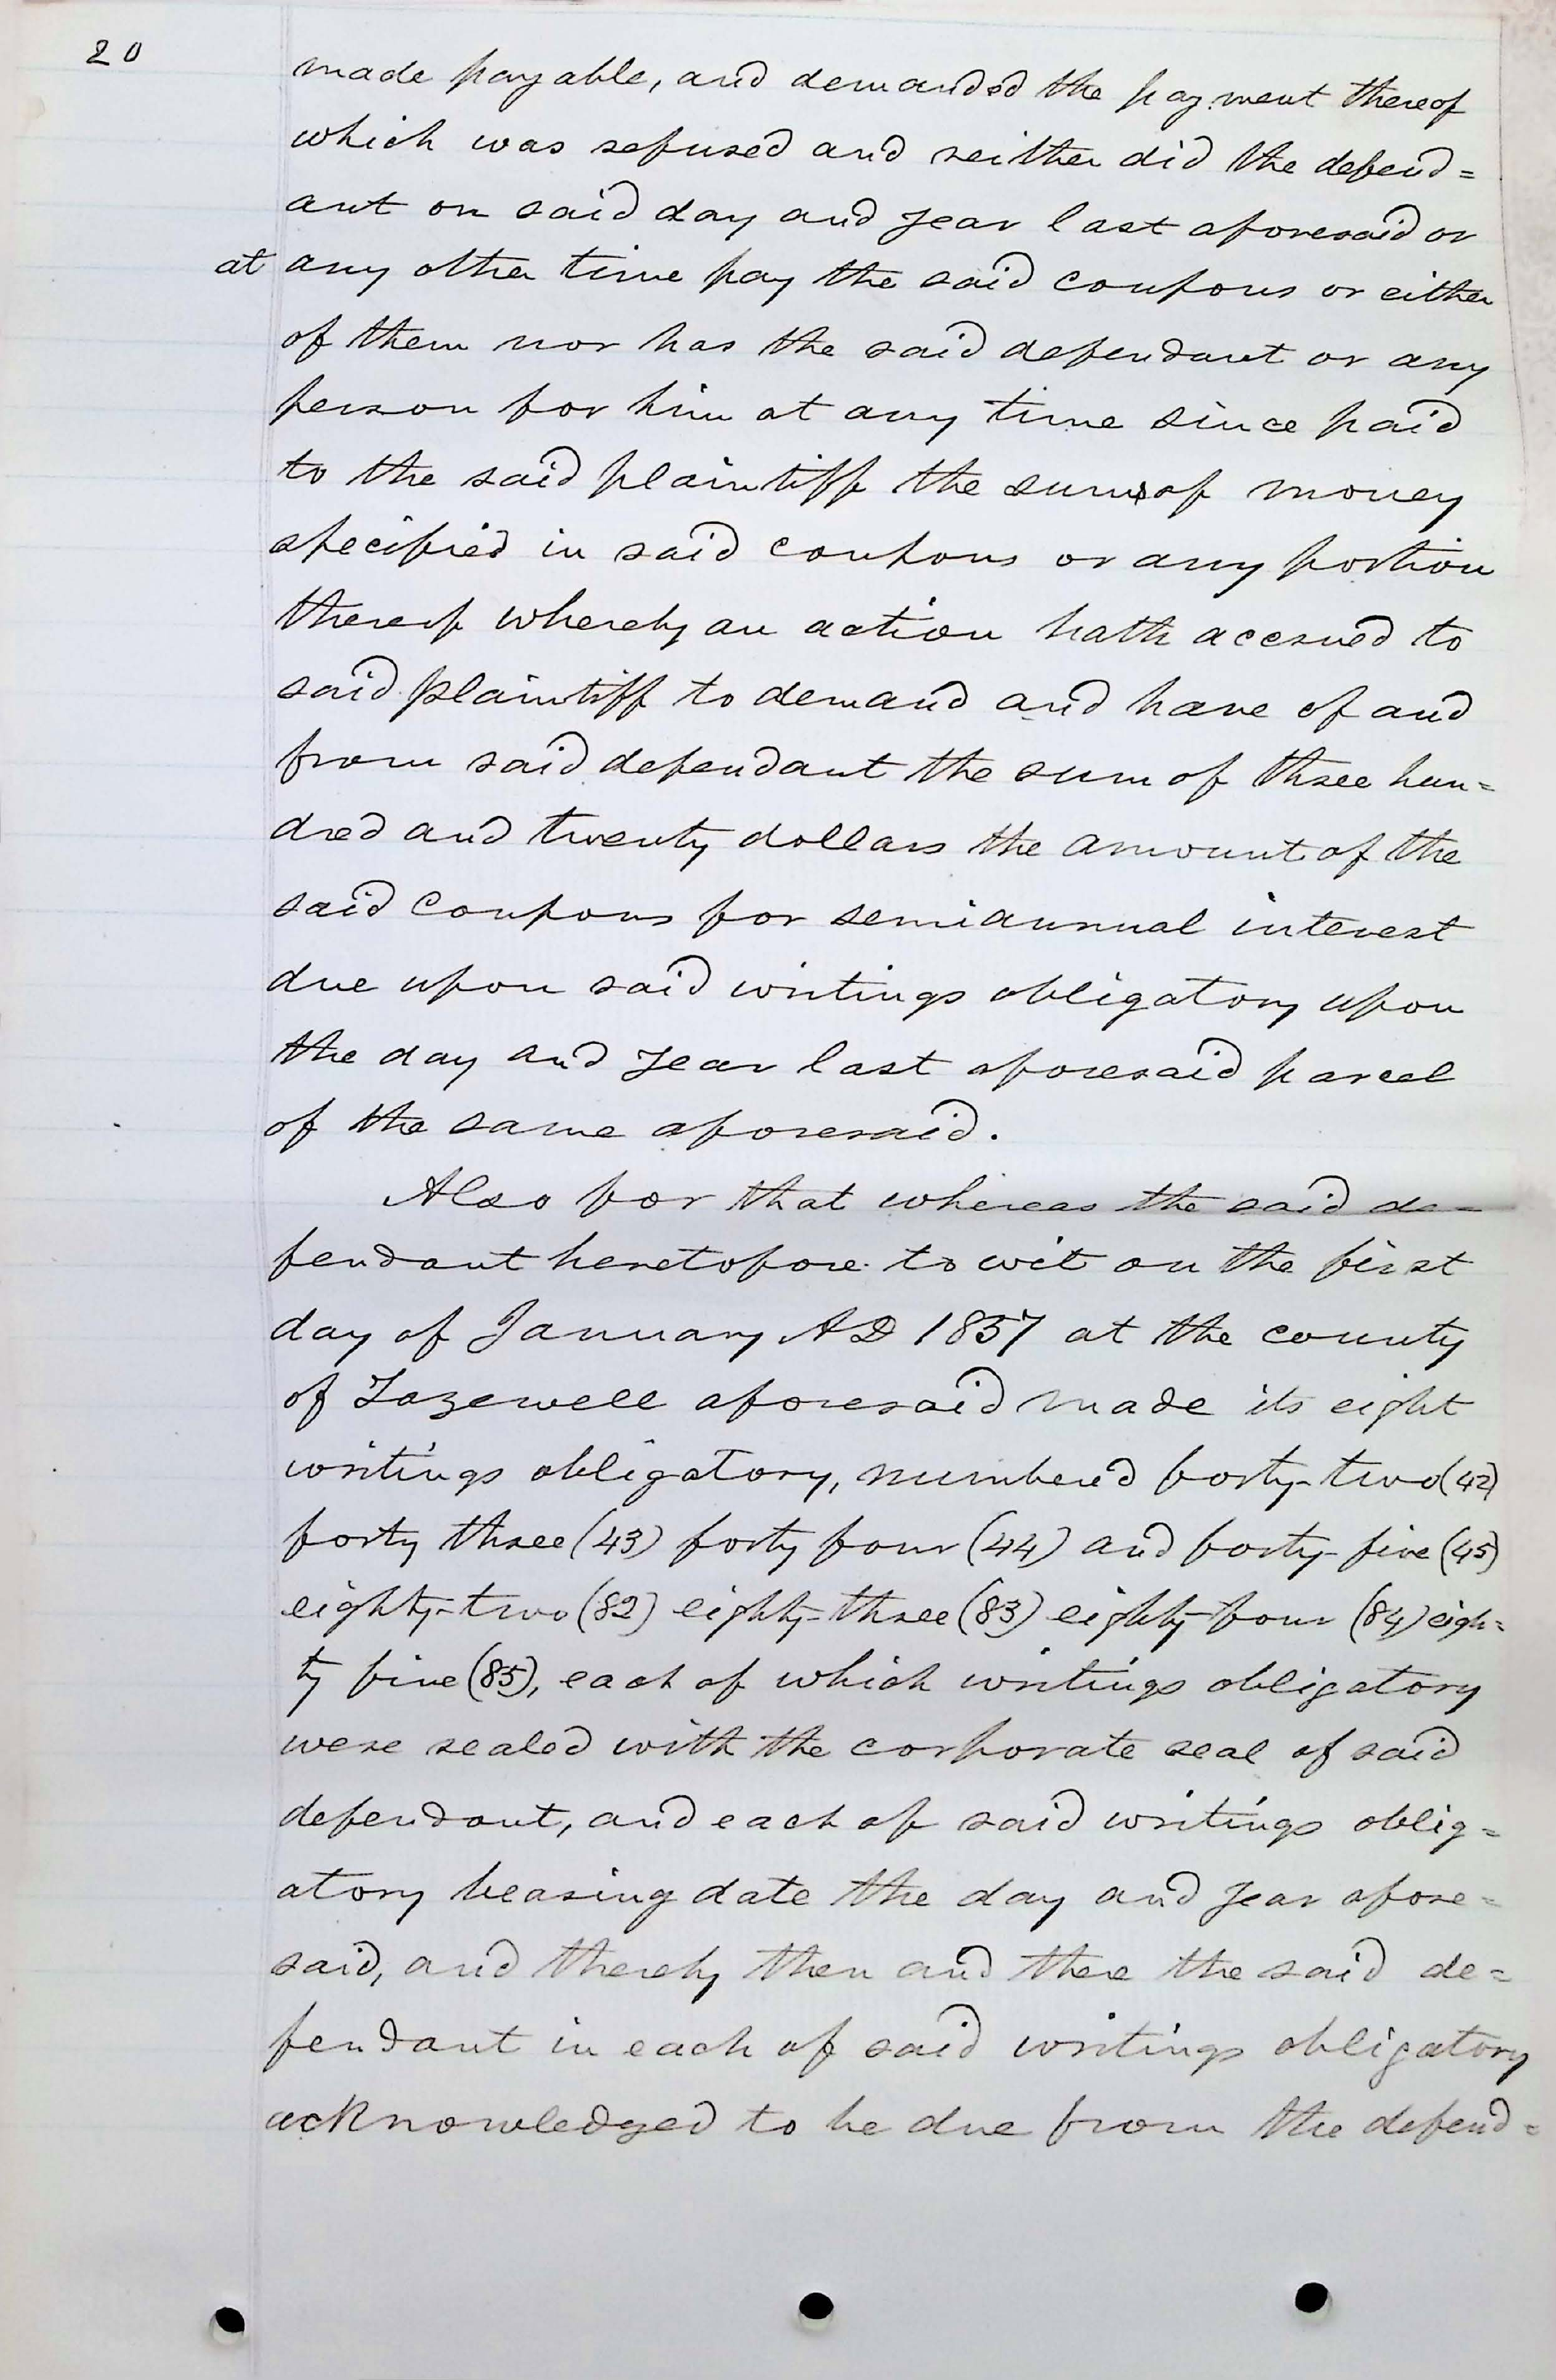 20
made payable, and demanded the payment thereof
which was refused and neither did the defend=
ant on said day and year last aforesaid or
at any other time pay the said coupons or either
of them nor has the said defendant or any
person for him at any time since paid
to the said plaintiff the sums of money
specified in said coupons or any portion
thereof whereby an action hath accrued to
said plaintiff to demand and have of and
from said defendant the sum of three hun=
dred and twenty dollars the amount of the
said coupons for semiannual interest
due upon said writings obligatory upon
the day and year last aforesaid parcel
of the same aforesaid.
Also for that whereas the said de=
fendant heretofore to wit on the first
day of January AD 1857 at the county
of Tazewell aforesaid made its eight
writings obligatory, numbered forty-two (42)
forty three (43) forty four (44) and forty-five (45)
eighty-two (82) eighty-three (83) eighty-four (84) eigh=
ty five (85), each of which writings obligatory
were sealed with the corporate seal of said
defendant, and each of said writings oblig=
atory bearing date the day and year afore=
said, and thereby then and there the said de=
fendant in each of said writings obligatory
acknowledged to be due from the defend=